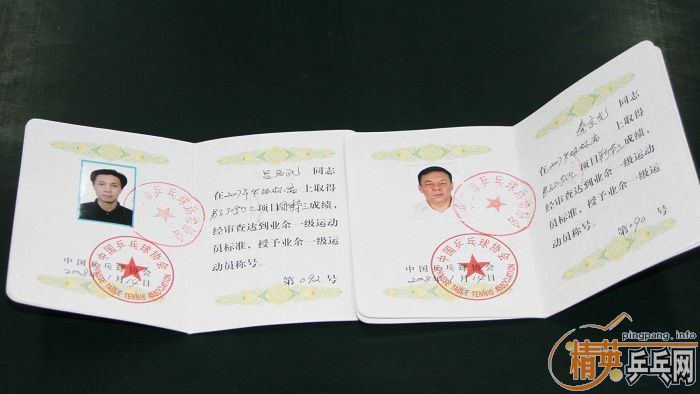 同志
在2007年 上取得
项目 成绩，
经审查达到业余一级运动
员标准，授予业余一级运
动员称号。
第092号
中国乒乓球协会
2008 1月14日
中国乒乓球协会
CHINESE TABLE TENNIS ASSOCIATION
同志
在2007年 上取得
项目 成绩，
经审查达到业余一级运动
员标准，授予业余一级运
动员称号。
第090号
中国乒乓球协会
2008 1月14日
中国乒乓球协会
CHINESE TABLE TENNIS ASSOCIATION
pingpang.info
精英乒乓网